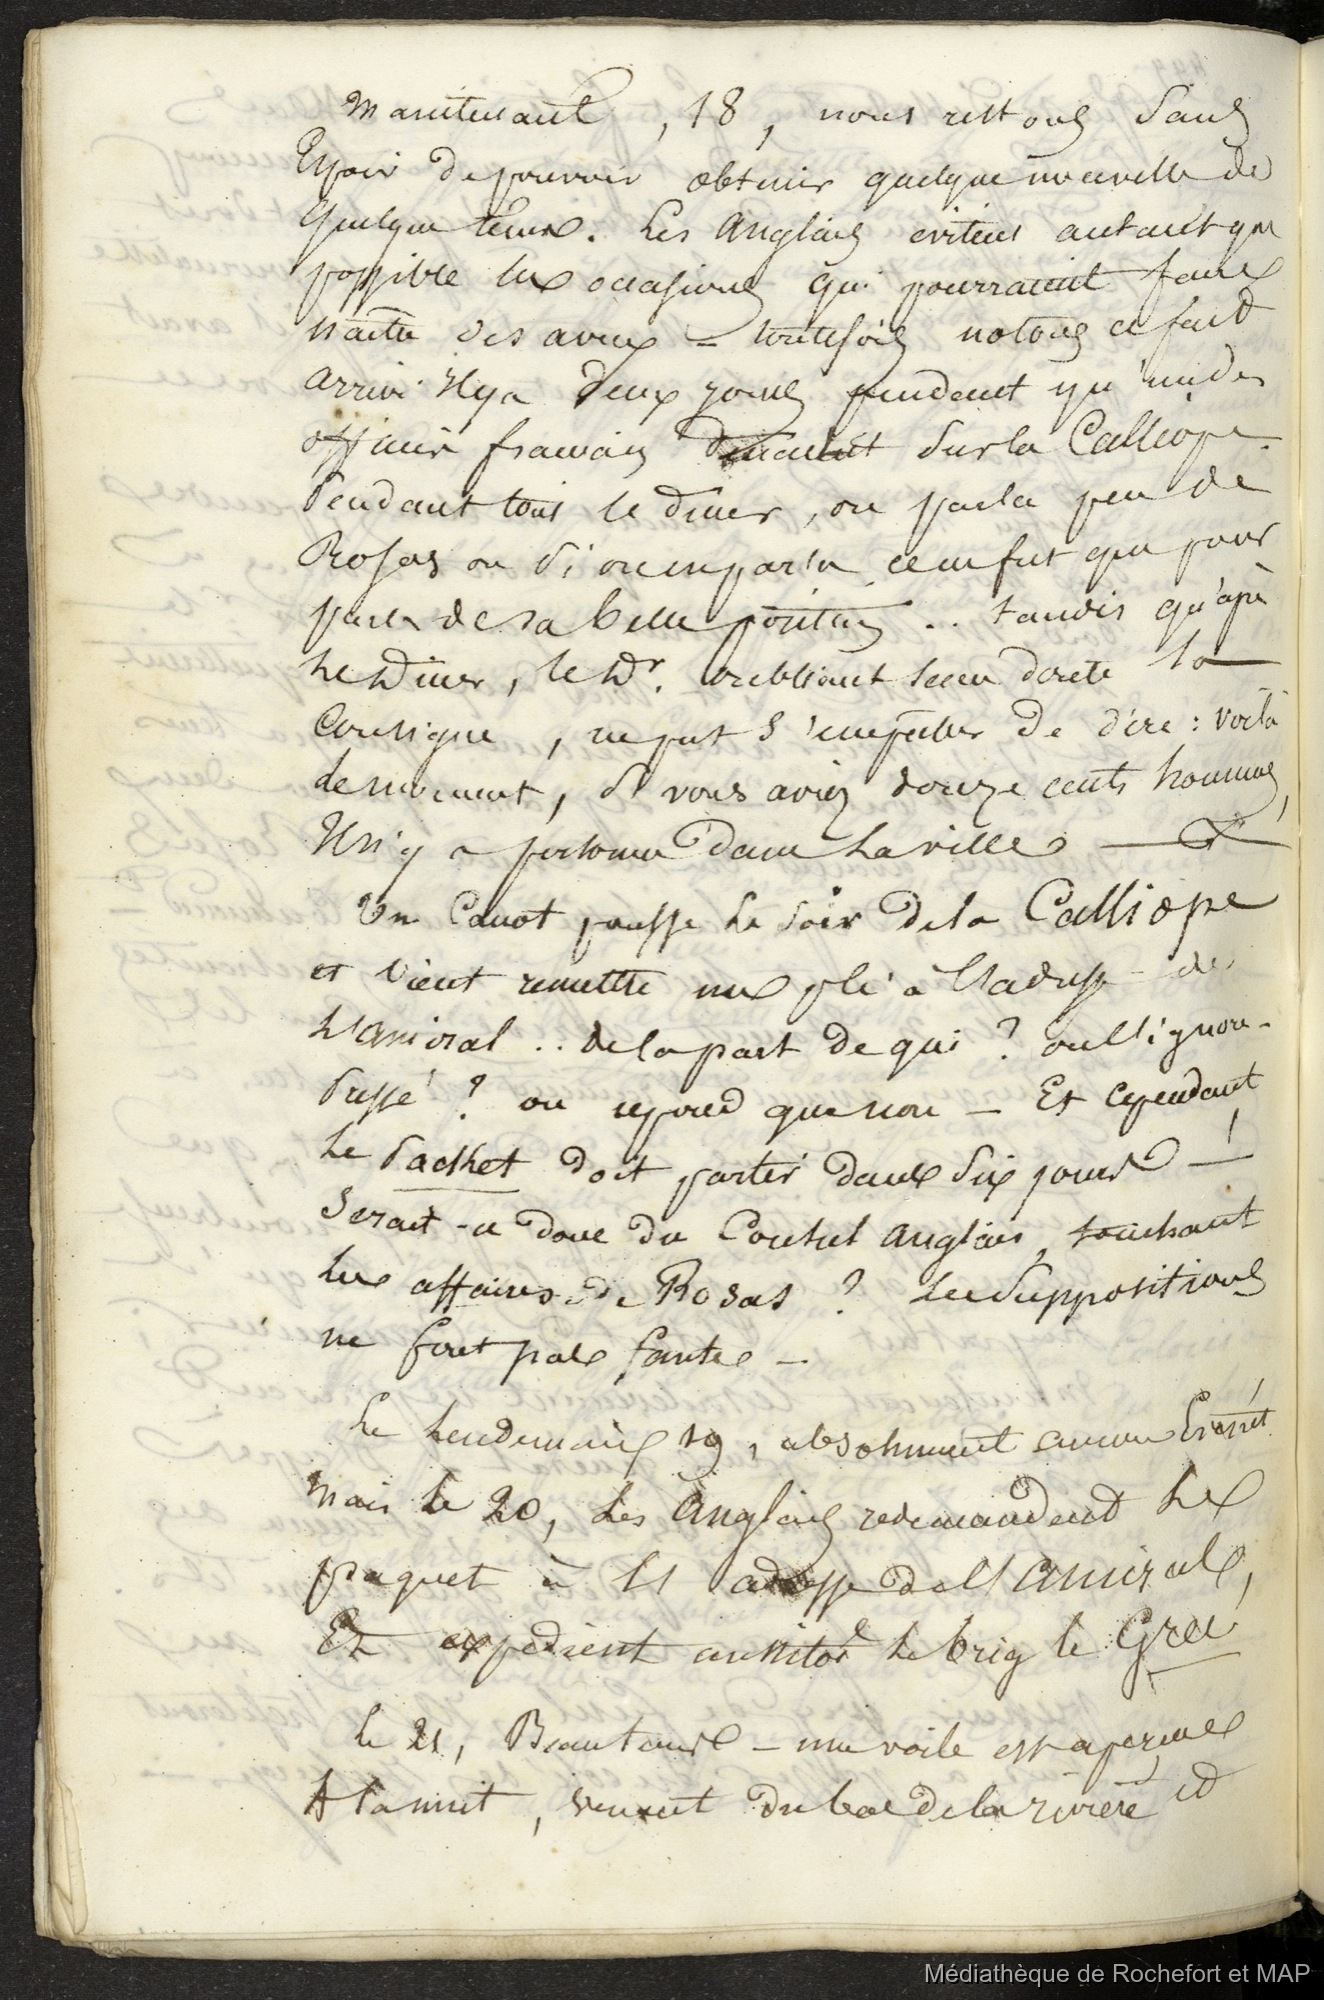 Maintenant, 18, nous restons sans
Espoir de pouvoir obtenir quelque nouvelle de
quelque tems. Les Anglais evitent autant que
possible les occasions qui pourraient faire
naitre des aveux - toutefois notons ce fait
arrivé il y a deux jours pendant qu'un des
officier français dinait sur la Calliope.
Pendant tout le diner, on parla peu de
Rosas ou si on en parla ce ne fut que pour
parler de sa belle position .. tandis qu'après
Le Diner, le Dr. oubliant sans doute la
Consigne, ne put s'empecher de dire : voilà
le moment, si vous aviez douze cents hommes,
Il n'y a personne dans La ville —
Un Canot pousse le soir de la Calliope
et vient remettre un pli à l'adresse de
L'amiral .. de la part de qui ? on l'ignore -
Pressé ? on repond que non — Et cependant
Le Packet doit partir dans six jours — !
Serait-ce donc du Consul anglais, touchant
les affaires de Rosas ? Les Suppositions
ne font pas faute —
Le Lendemain 19, absolument aucun
Mais le 20, Les Anglais redemandent Le
paquet à l'adresse de l'Amiral,
Et expedient aussitot le brig le
Le 21, Beau tems — une voile est aperçue
A la nuit, venant du bas de la rivière et
Médiathèque de Rochefort et MAP